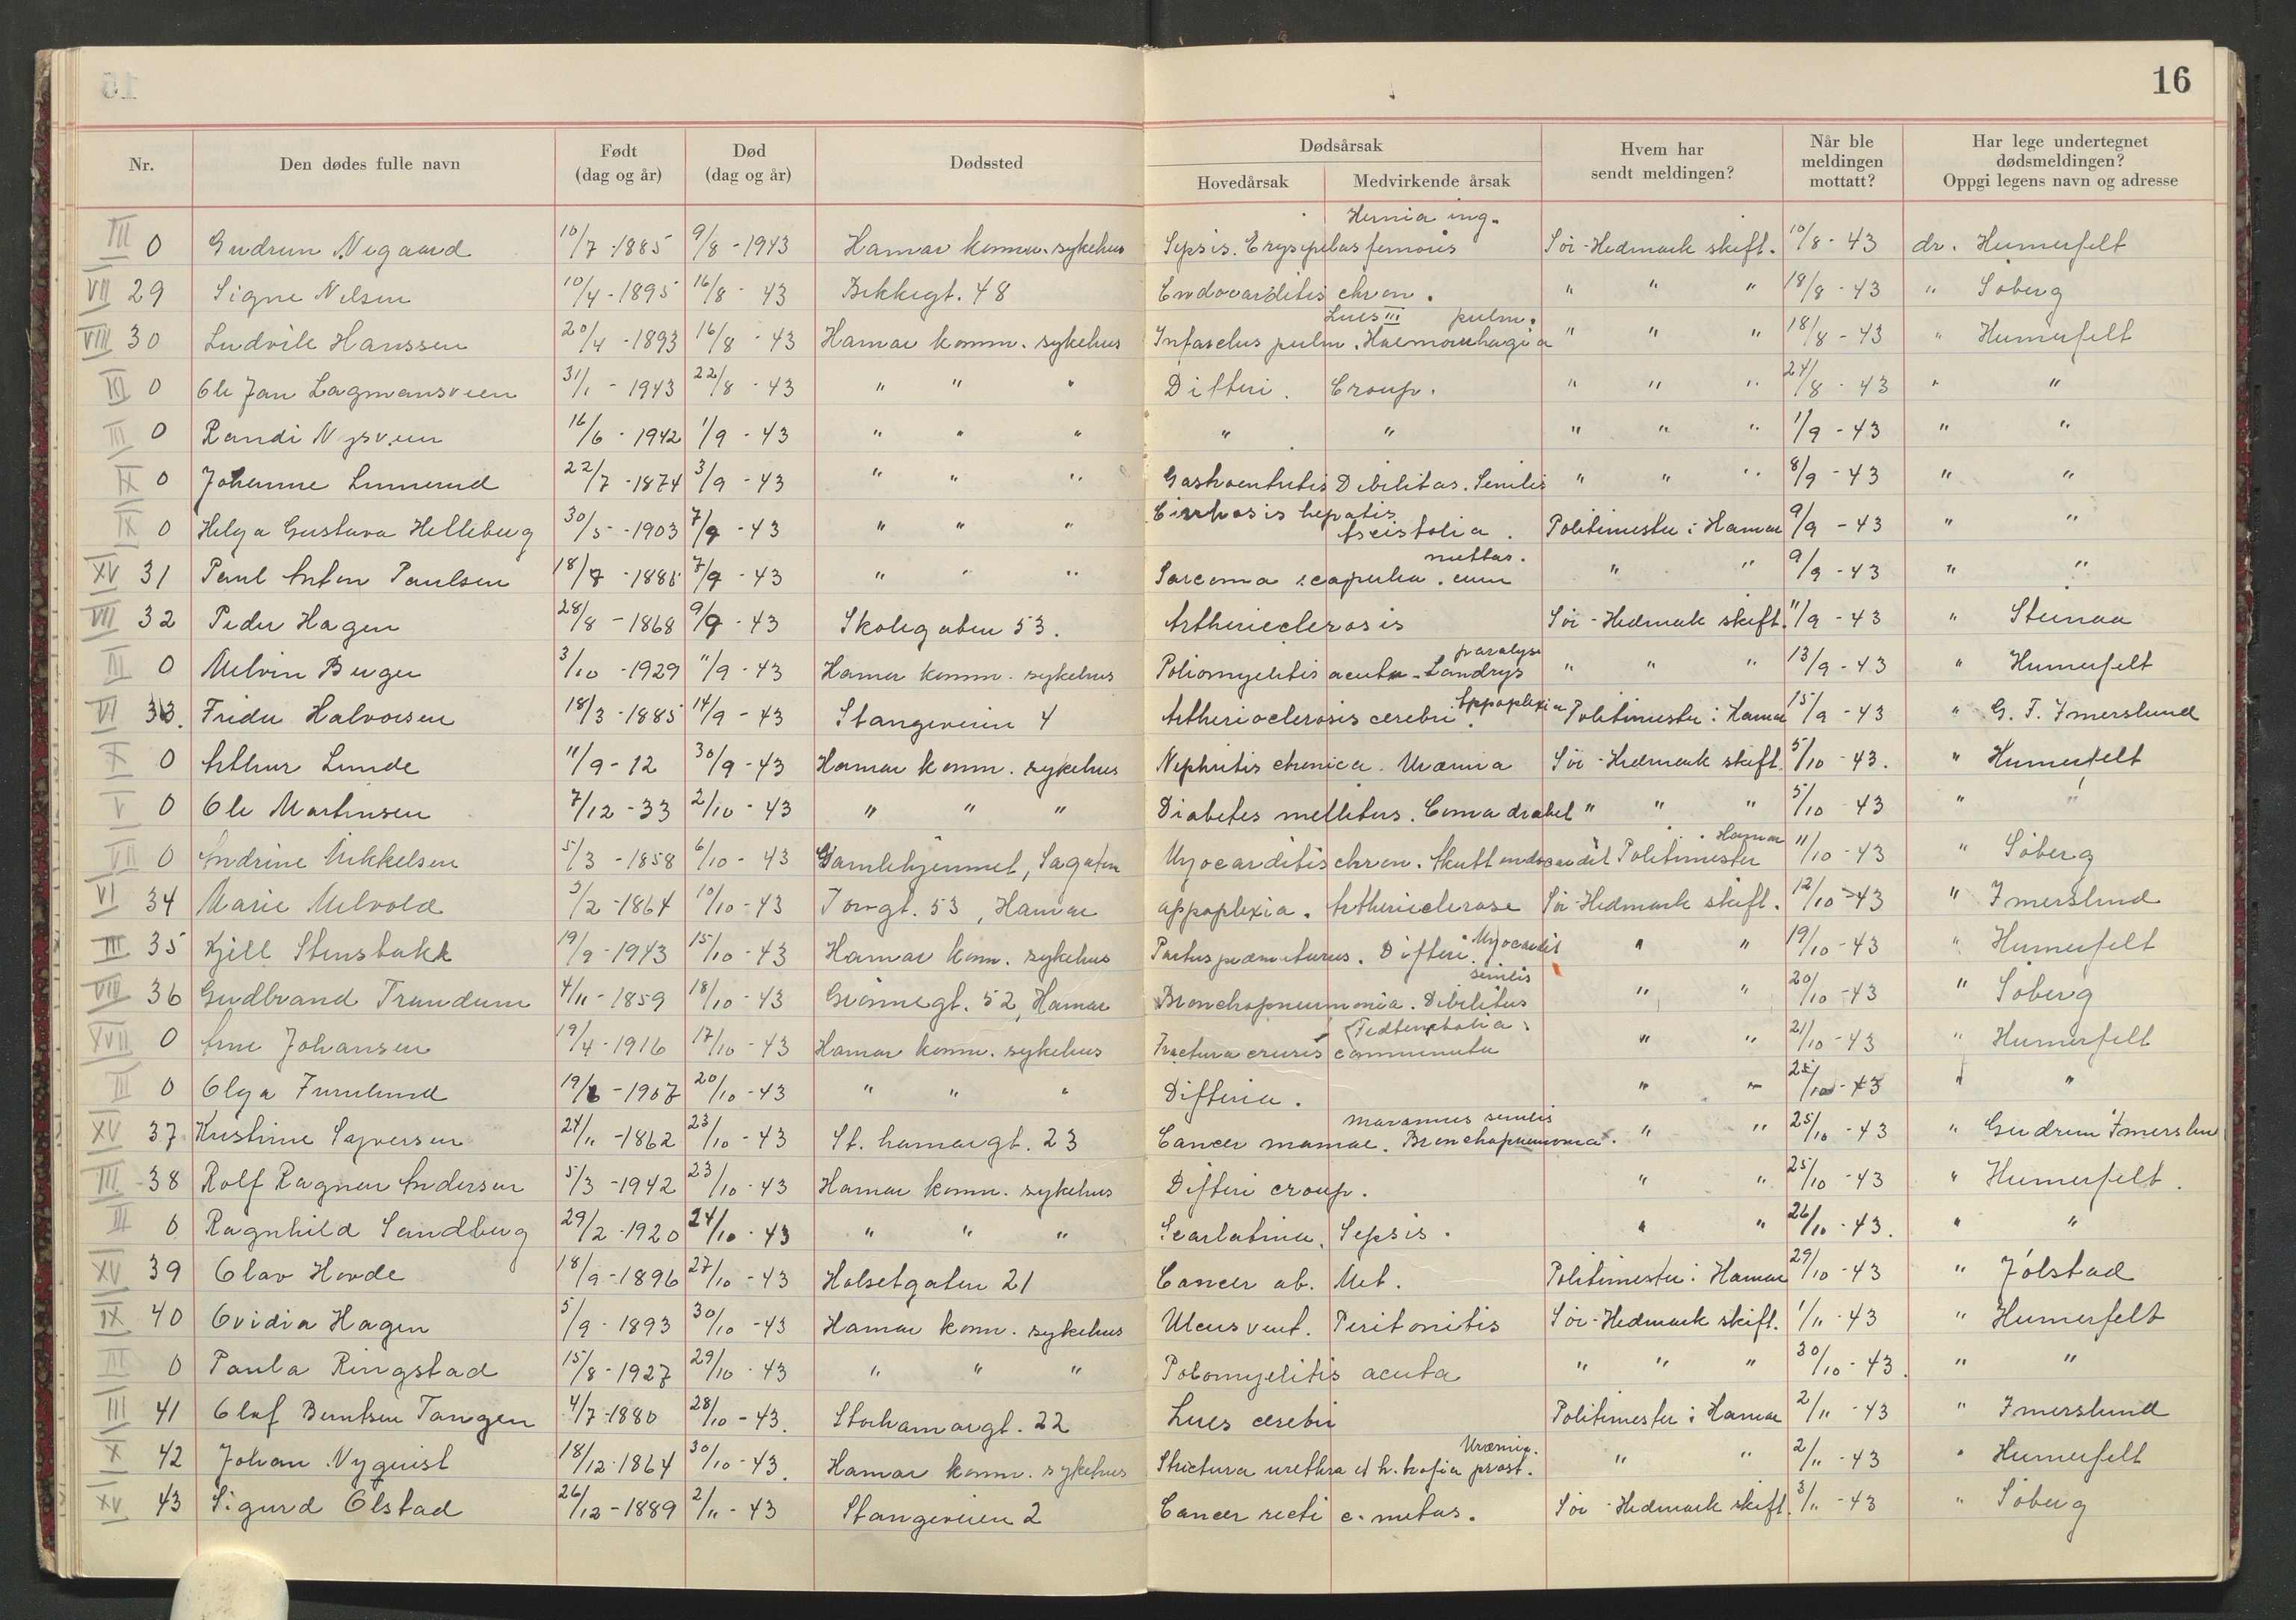 16
Nr. Den dødes fulle navn Født (dag og år) Død (dag og år) Dødssted Dødsårsak Hovedårsak Medvirkende årsak Hvem har sendt meldingen? Når ble meldingen mottatt? Har lege undertegnet dødsmeldingen? Oppgi legens navn og adresse
III 0 Gudrun Nygaard 10/7-1885 9/8-1943 Hamar komm. sykehus Sepsis. Erysipelas femoris Hernia ing. Sør-Hedmark skift. 10/8-43 dr. Humerfelt
VII 29 Signe Nilsen 10/4-1895 16/8-43 Bekkegt. 48 Endocarditis chron. " " " 18/8-43 " Søberg
VIII 30 Ludvik Hanssen 20/4-1893 16/8-43 Hamar komm. sykehus Infarctus pulm. Lues III Haemorrhagia pulm. " " " 18/8-43 " Humerfelt
III 0 Ole Jan Lagmansveen 31/1-1943 22/8-43 " " " Difteri. Croup. " " " 24/8-43 " "
III 0 Randi Nysveen 16/6-1942 1/9-43 " " " " " " " " 1/9-43 " "
IX 0 Johanne Linnerud 22/7-1874 3/9-43 " " " Gastroenteritis Debilitas. Senilis " " " 8/9-43 " "
IX 0 Helga Gustava Helleberg 30/5-1903 7/9-43 " " " Cirrhosis hepatis Politimester i Hamar 9/9-43 " "
XV 31 Paul Anton Paulsen 18/7-1885 7/9-43 " " " Sarcoma scapula. cum mettas. " " 9/9-43 " "
VII 32 Peder Hagen 28/8-1868 9/9-43 Skolegaten 53. Artherieclerosis Sør-Hedmark skift. 11/9-43 "
III 0 Melvin Berger 3/10-1929 11/9-43 Hamar komm. sykehus Poliomyelitis acuta-Landrys paralyse " " " 13/9-43 " Humerfelt
VI 33. Frida Halvorsen 18/3-1885 14/9-43 Stangeveien 4 Artherioclerosis cerebri. Appoplexia Politimester i Hamar 15/9-43 " G. F. Imerslund
X 0 Arthur Lunde 11/9-12 30/9-43 Hamar komm. sykehus Nephritis chronica. Uræmia Sør-Hedmark skift. 5/10-43. " Humerfelt
V 0 Ole Martinsen 7/12-33 2/10-43 " " " Diabetes mellitus. Coma diabet " " " 5/10 43 " "
VII 0 Andrine Mikkelsen 5/3-1858 6/10-43 Gamlehjemmet, Sagaten Myocarditis chron. Akutt endocardit Politimester i Hamar 11/10-43 " Søberg
VI 34 Marie Melvold 3/2-1864 10/10-43 Torvgt. 53, Hamar appoplexia. Artherieclerose Sør-Hedmark skift. 12/10-43 " Imerslund
III 35 Kjell Stensbakk 19/9-1943 15/10-43 Hamar kom. sykehus Partus præmaturus. Difteri. Myocardit " " 19/10-43 " Humerfelt
VIII 36 Gudbrand Trandum 4/11-1859 18/10-43 Grønnegt. 52, Hamar Bronchopneumonia. Debilitas senilis " " 20/10-43 " Søberg
XVII 0 Arne Johansen 19/4-1916 17/10-43 Hamar komm. sykehus Fractura cruris communuta Fedtembolia. " " 21/10-43 " Humerfelt
III 0 Olga Furulund 19/6-1907 20/10-43 " " " Difteria. " " 25/10-43 " "
XV 37 Kristine Syversen 24/11-1862 23/10-43 St. hamargt. 23 Cancer mamae. Bronchopneumonia. marasmus senilis " " 25/10-43 " Gudrun Imerslun
III 38 Rolf Ragnar Andersen 5/3-1942 23/10-43 Hamar komm. sykehus Difteri croup. " " 25/10-43 " Humerfelt.
III 0 Ragnhild Sandberg 29/2-1920 24/10-43 " " " Scarlatina. Sepsis. " " 26/10-43. " "
XV 39 Olav Hovde 18/9-1896 27/10-43 Holsetgaten 21 Cancer ab. Met. Politimester i Hamar 29/10-43 " Jølstad
IX 40 Ovidia Hagen 5/9-1893 30/10-43 Hamar kom. sykehus Ulcus vent. Peritonitis Sør-Hedmark skift. 1/11-43 " Humerfelt
III 0 Paula Ringstad 15/8-1927 29/10-43 " " " Polomyelitis acuta " " " 30/10-43. " "
III 41 Olaf Berntsen Tangen 4/7-1880 28/10-43. Storhamargt. 22 Lues cerebri Politimester i Hamar 2/11-43 " Imerslund
X 42 Johan Nyquist 18/12-1864 30/10-43. Hamar komm. sykehus Strictura urethra et h.trofia prost. Uræmia. " " 2/11-43 " Humerfelt
XV 43 Sigurd Olstad 26/12-1889 2/11-43 Stangeveien 2 Cancer recti c. metas. Sør-Hedmark skift. 3/11-43 " Søberg